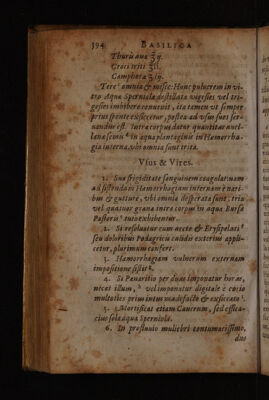 394 BASILICA
Thuris ana ℥ij.
Croci triti ℥ii.
Camphoræ ℥ij.
Tere omnia & misce: Hunc pulverem in vi-
tro Aqua Sperniola destillata vigesies vel tri-
gesies imbibere convenit, ita tamen ut semper
prius sponte exsiccetur, postea ad usus suos ser-
vandus est. Intra corpus datur quantitas avel-
lanæ in aqua plantaginis in Hæmorrha-
gia interna, ubi omnia sunt trita.
Usus & Vires.
1. Sua frigiditate sanguinem coagulat nam
ad sistendam Hæmorrhagiam internam è nari-
bus & gutture, ubi omnia desperata sunt, tria
vel quatuor grana intra corpus in aqua Bursæ
Pastoris tutò exhibentur.
2. Si resolvatur cum aceto & Erysipelati
seu doloribus Podagricis calidis exterius appli-
cetur, plurimum confert.
3. Hæmorrhagiam vulnerum externam
impositione sistit.
4. Si Panaritio per duas imponatur horas,
necat illum, vel imponatur digitale è corio
multoties prius intus madefacto & exsiccato.
5. Mortificat etiam Cancrum, sed effica-
cius sola aqua Sperniolæ.
6. In profluvio muliebri contumacissimo,
duo